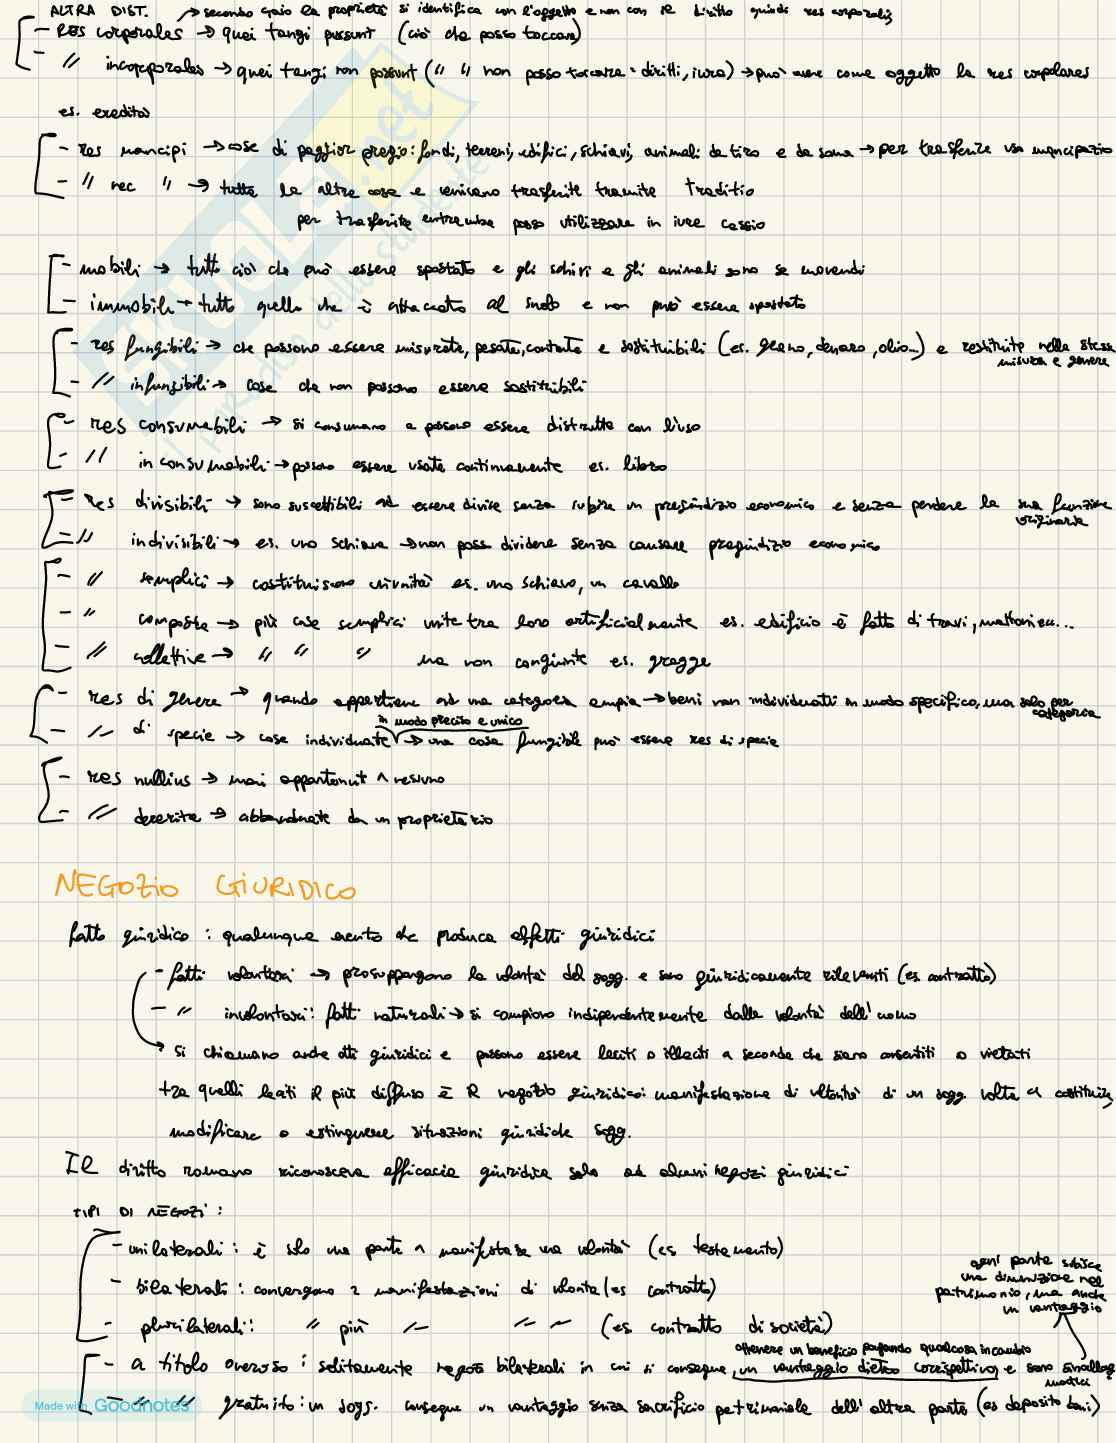 ALTRA DIST. → secondo Gaio la proprietà si identifica con l'oggetto e non con il diritto quindi res corporalis
- RES corporales → quei tangi possunt (ciò che posso toccare)
- // incorporales → quei tangi non possunt (" " non posso toccare = diritti, iura) → può avere come oggetto la res corpolares
es. eredità
- res mancipi → cose di maggior pregio: fondi, terreni, edifici, schiavi, animali da tiro e da soma → per trasferire uso mancipazio
- // nec // → tutte le altre cose e venivano trasferite tramite traditio
per trasferire entrambe posso utilizzare in iure cessio
- mobili → tutto ciò che può essere spostato e gli schiavi e gli animali sono se movendi
- immobili → tutto quello che è attaccato al suolo e non può essere spostato
- res fungibili → che possono essere misurate, pesate, contate e sostituibili (es. grano, denaro, olio...) e restituite nella stessa
misura e genere
- // infungibili → cose che non possono essere sostituibili
- res consumabili → si consumano e possono essere distrutte con l'uso
- // inconsumabili → possono essere usate continuamente es. libro
- res divisibili → sono suscettibili ad essere divise senza subire un pregiudizio economico e senza perdere la sua funzione
originaria
- // indivisibili → es. uno schiavo → non posso dividere senza causare pregiudizio economico
- // semplici → costituiscono un'unità es. uno schiavo, un cavallo
- // composte → più cose semplici unite tra loro artificialmente es. edificio è fatto di travi, mattoni ecc...
- // collettive → // // // ma non congiunte es. gregge
- res di genere → quando appartiene ad una categoria ampia → beni non individuati in modo specifico, ma solo per
categoria
in modo preciso e unico
- // di specie → cose individuate → una cosa fungibile può essere res di specie
- res nullius → mai appartenuti a nessuno
- // derelitte → abbandonate da un proprietario
NEGOZIO GIURIDICO
fatto giuridico : qualunque evento che produca effetti giuridici
- fatti volontari → presuppongono la volontà del sogg. e sono giuridicamente rilevanti (es contratto)
- // involontari: fatti naturali → si compiono indipendentemente dalla volontà dell'uomo
→ si chiamano anche atti giuridici e possono essere leciti o illeciti a seconda che siano consentiti o vietati
tra quelli leciti il più diffuso è il negozio giuridico: manifestazione di volontà di un sogg. volta a costituire,
modificare o estinguere situazioni giuridiche sogg.
Il diritto romano riconosceva efficacia giuridica solo ad alcuni negozi giuridici
TIPI DI NEGOZI :
- unilaterali : è solo una parte a manifestare una volontà (es testamento)
- bilaterali : convergono 2 manifestazioni di volontà (es contratto)
- plurilaterali : // più // // // (es contratto di società)
ogni parte subisce
una diminuzione nel
patrimonio, ma anche
un vantaggio
ottenere un beneficio pagando qualcosa in cambio
- a titolo oneroso : solitamente negozi bilaterali in cui si consegue un vantaggio dietro corrispettivo e sono sinallag
matici
- // // gratuito : un sogg. consegue un vantaggio senza sacrificio patrimoniale dell'altra parte (es deposito, doni)
Made with Goodnotes